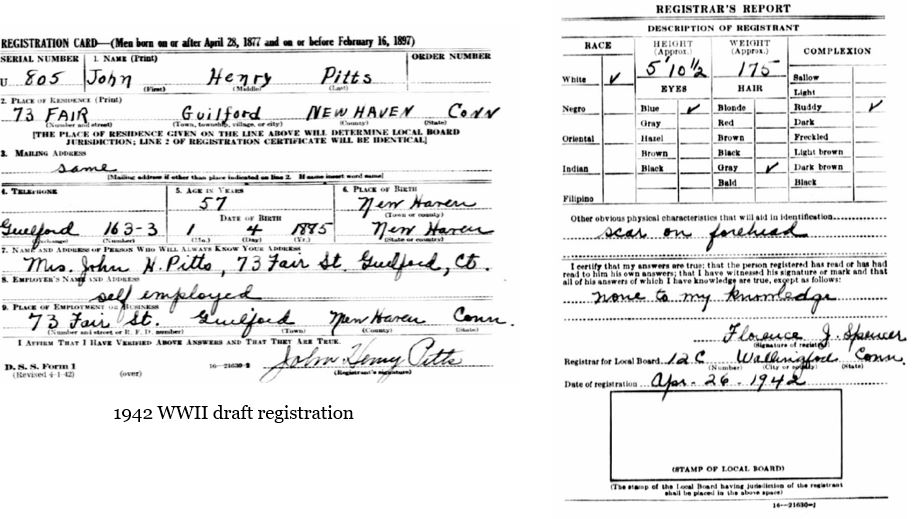 REGISTRATION CARD—(Men born on or after April 28, 1877 and on or before February 16, 1897)
SERIAL NUMBER 1. NAME (Print) ORDER NUMBER
U 805 John Henry Pitts
(First) (Middle) (Last)
2. PLACE OF RESIDENCE (Print)
73 FAIR Guilford NEW HAVEN CONN
(Number and street) (Town, township, village, or city) (County) (State)
[THE PLACE OF RESIDENCE GIVEN ON THE LINE ABOVE WILL DETERMINE LOCAL BOARD
JURISDICTION; LINE 2 OF REGISTRATION CERTIFICATE WILL BE IDENTICAL]
3. MAILING ADDRESS
same
[Mailing address if other than place indicated on line 2. If same insert word same]
4. TELEPHONE 5. AGE IN YEARS 6. PLACE OF BIRTH
57 New Haven
DATE OF BIRTH (Town or county)
Guilford 163-3 1 4 1885 New Haven
(Exchange) (Number) (Mo.) (Day) (Yr.) (State or country)
7. NAME AND ADDRESS OF PERSON WHO WILL ALWAYS KNOW YOUR ADDRESS
Mrs. John H. Pitts, 73 Fair St. Guilford, Ct.
8. EMPLOYER'S NAME AND ADDRESS
self employed
9. PLACE OF EMPLOYMENT OR BUSINESS
73 Fair St. Guilford New Haven Conn.
(Number and street or R. F. D. number) (Town) (County) (State)
I AFFIRM THAT I HAVE VERIFIED ABOVE ANSWERS AND THAT THEY ARE TRUE.
D. S. S. Form 1 16—21630-2 John Henry Pitts
(Revised 4-1-42) (over) (Registrant's signature)
1942 WWII draft registration
REGISTRAR'S REPORT
DESCRIPTION OF REGISTRANT
RACE HEIGHT (Approx.) WEIGHT (Approx.) COMPLEXION
5' 10 1/2 175
White ✓ EYES HAIR Sallow
Light
Negro Blue ✓ Blonde Ruddy ✓
Gray Red Dark
Oriental Hazel Brown Freckled
Brown Black Light brown
Indian Black Gray ✓ Dark brown
Bald Black
Filipino
Other obvious physical characteristics that will aid in identification
scar on forehead
I certify that my answers are true; that the person registered has read or has had
read to him his own answers; that I have witnessed his signature or mark and that
all of his answers of which I have knowledge are true, except as follows:
none to my knowledge
Florence J. Spencer
(Signature of registrar)
Registrar for Local Board 12C Wallingford Conn.
(Number) (City or county) (State)
Date of registration Apr. 26 - 1942
(STAMP OF LOCAL BOARD)
(The stamp of the Local Board having jurisdiction of the registrant
shall be placed in the above space)
16—21630-1